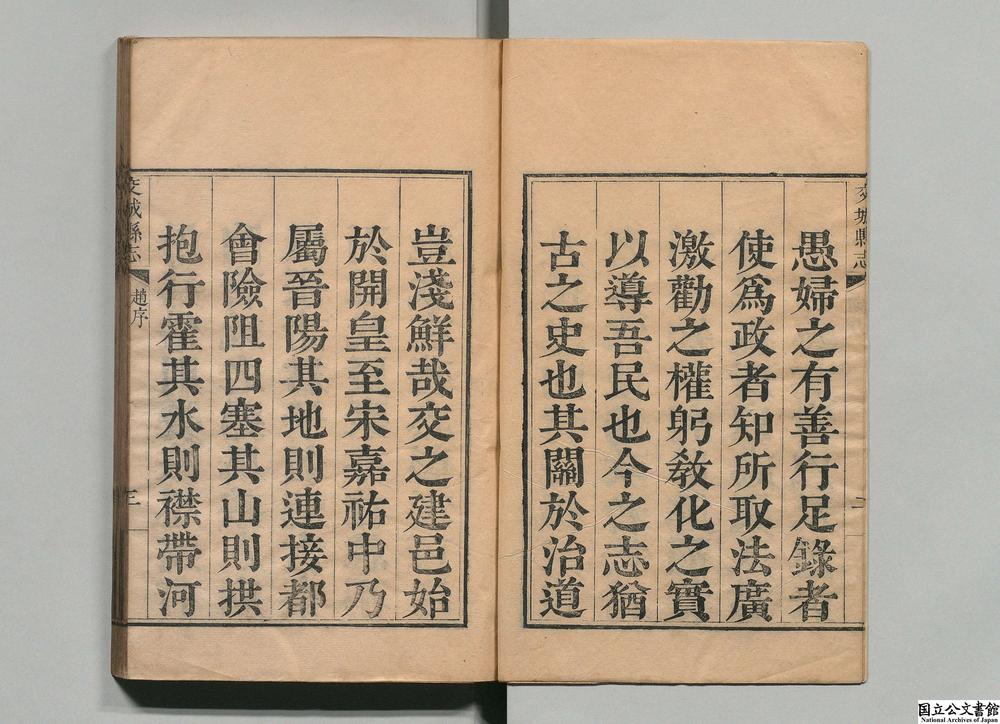 交城縣志
二
愚婦之有善行足錄者
使爲政者知所取法廣
激勸之權躬敎化之實
以導吾民也今之志猶
古之史也其關於治道
豈淺鮮哉交之建邑始
於開皇至宋嘉祐中乃
屬晉陽其地則連接都
會險阻四塞其山則拱
抱行霍其水則襟帶河
交城縣志
趙序
三
国立公文書館
National Archives of Japan